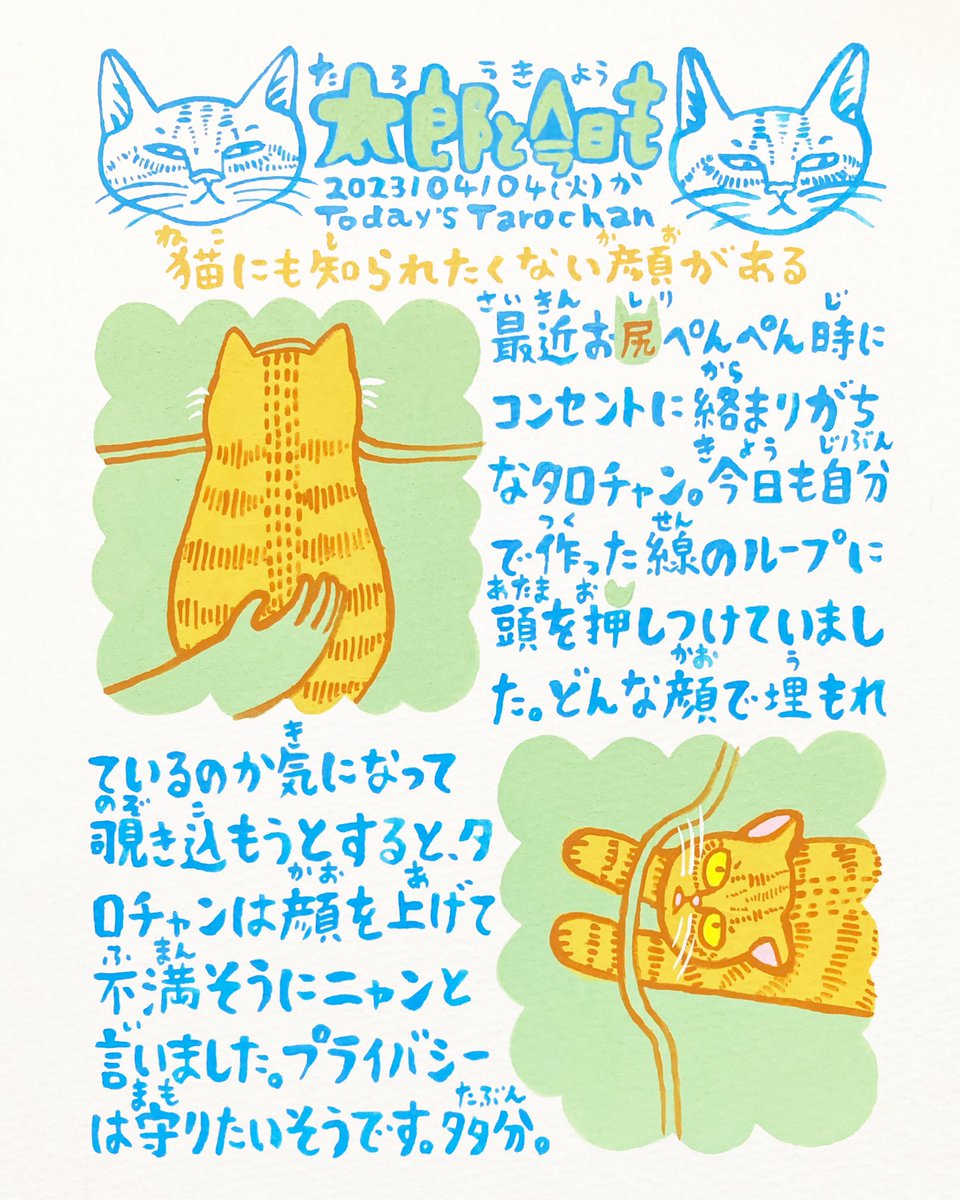 たろうきょう
太郎と今日も
2023/04/04(火)か
Today's Tarochan
ねこ し かお
猫にも知られたくない顔がある
さいきん しり じ
最近お尻ぺんぺん時に
から
コンセントに絡まりがち
きょう じぶん
なタロチャン。今日も自分
つく せん
で作った線のループに
あたま お
頭を押しつけていまし
かお う
た。どんな顔で埋もれ
き
ているのか気になって
のぞ こ
覗き込もうとすると、タ
かお あ
ロチャンは顔を上げて
ふまん
不満そうにニャンと
い
言いました。プライバシー
まも たぶん
は守りたいそうです。タタ分。